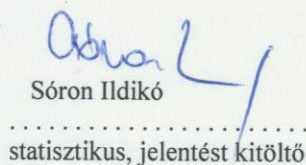 Sóron Ildikó
. . . . . . . . . . . . . . . . . . . . . . . . . .
statisztikus, jelentést kitöltő